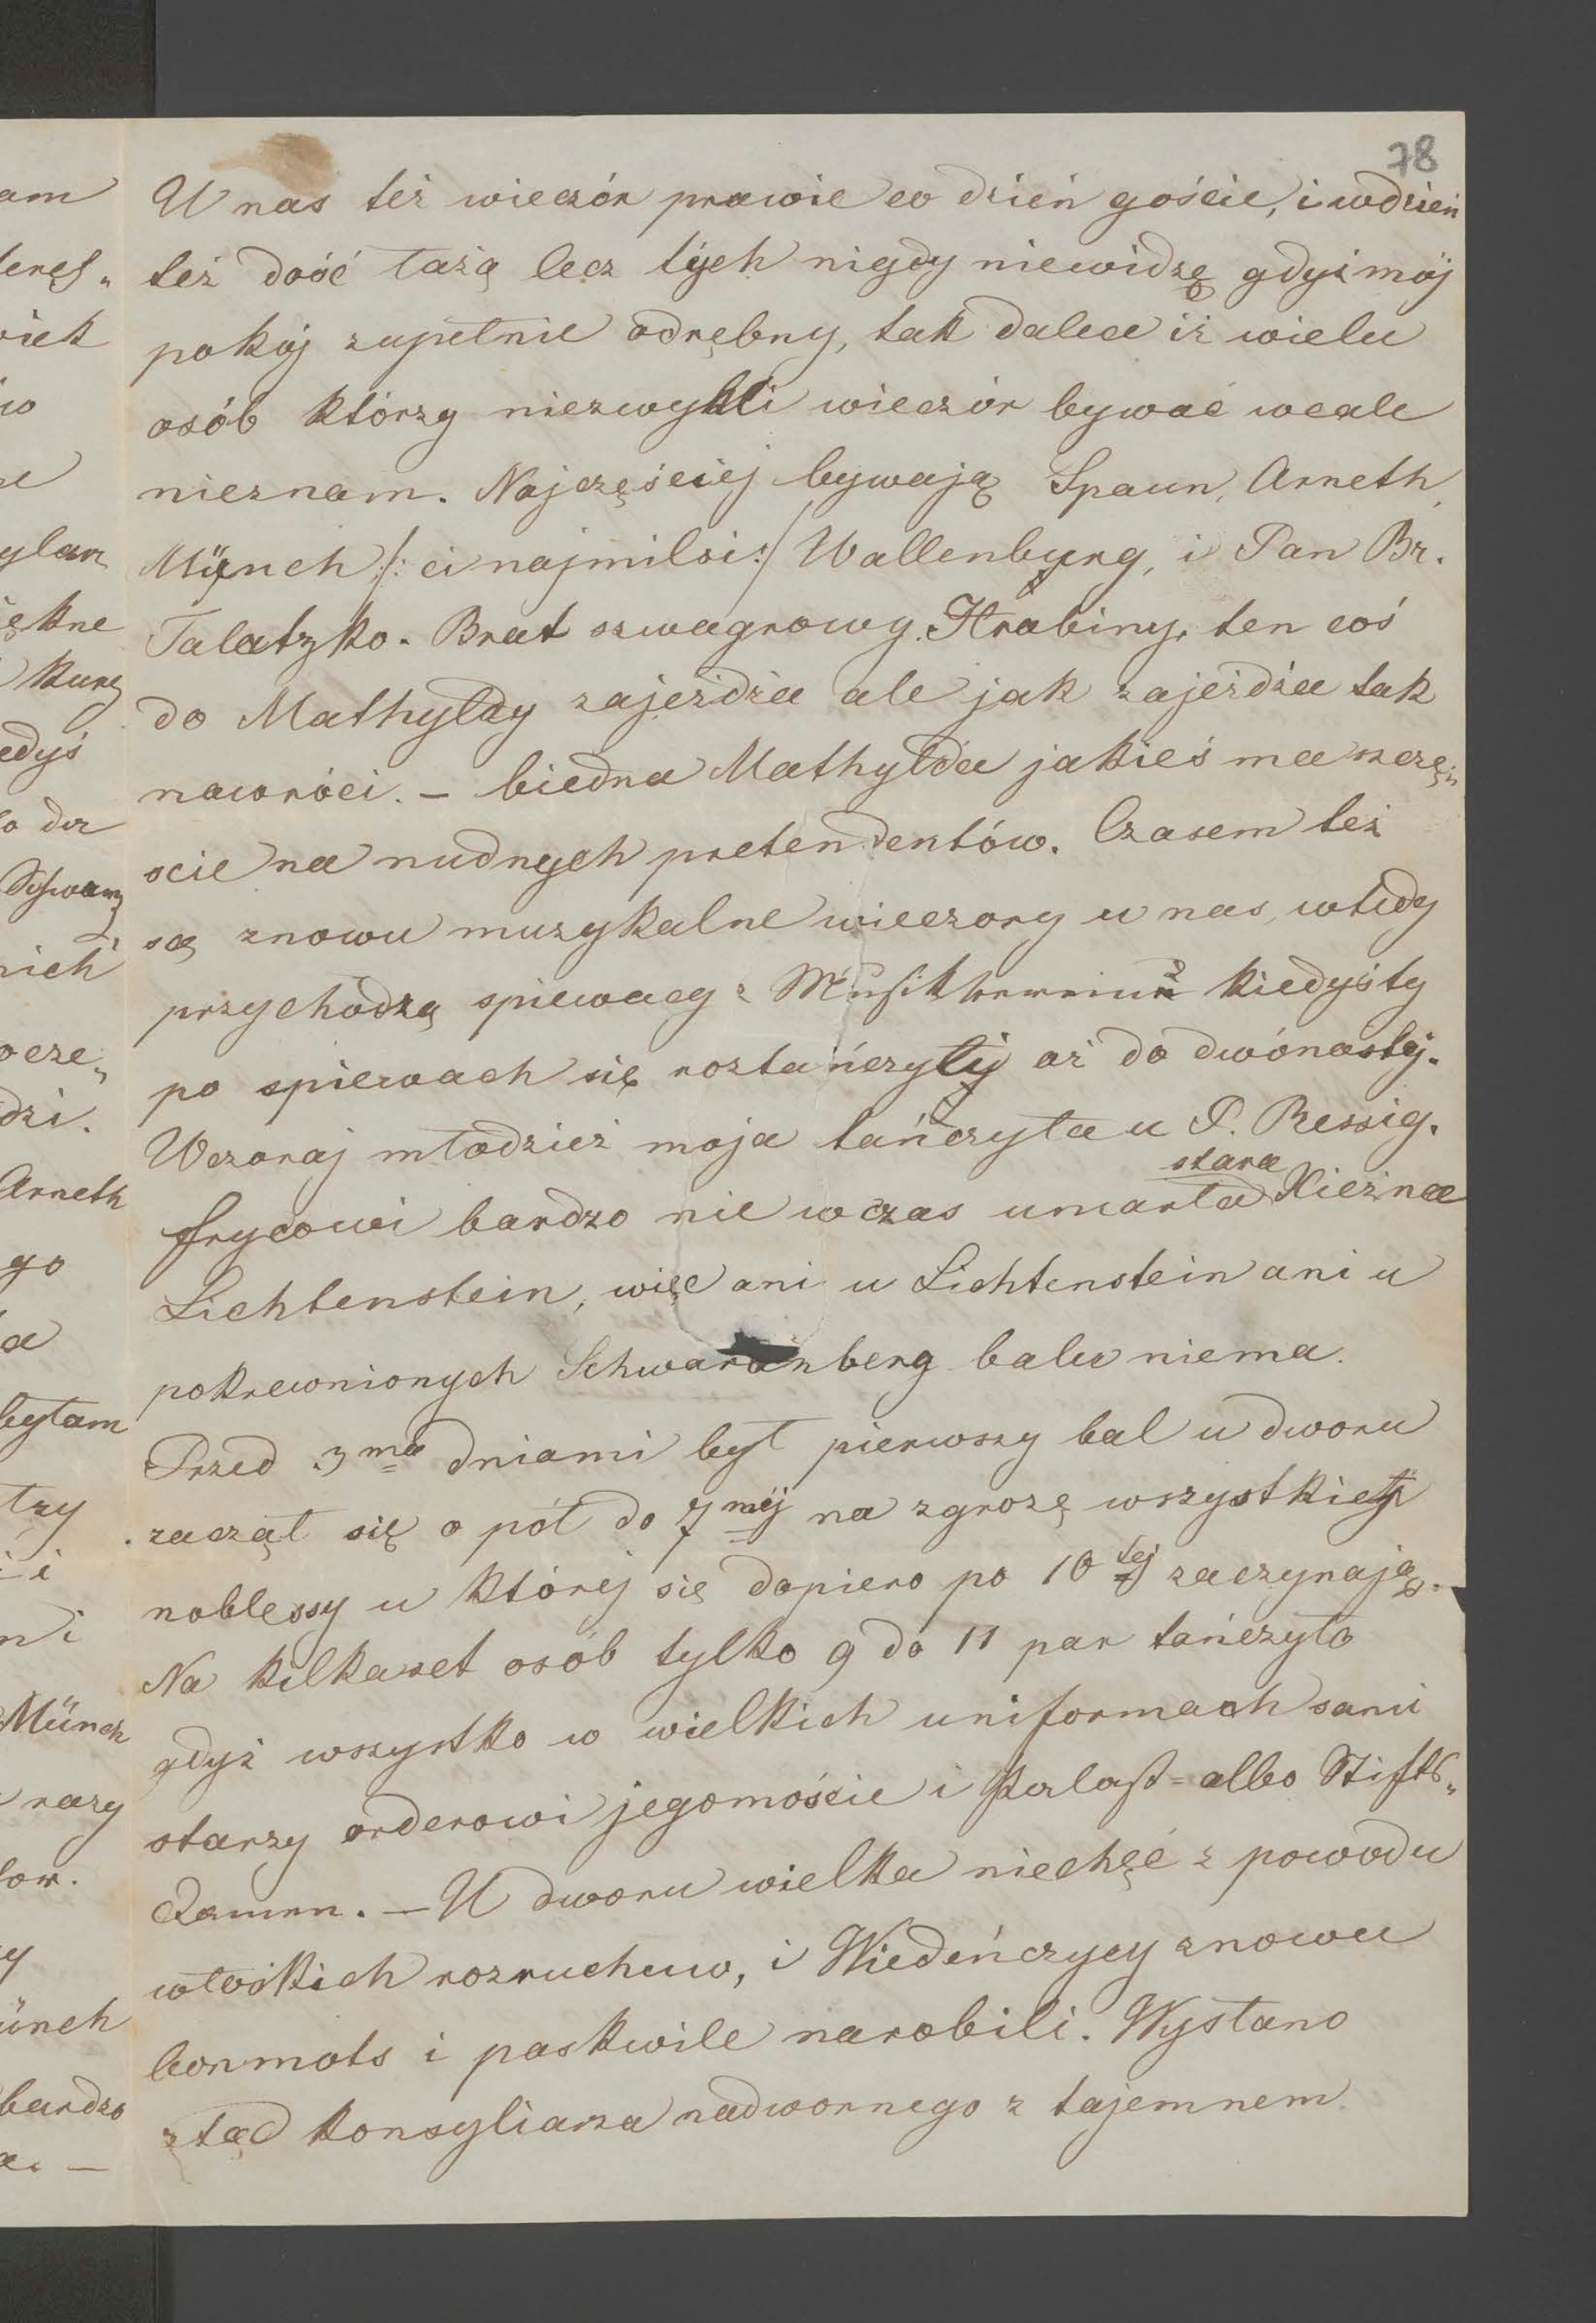 78
U nas też wieczór prawie co dzień goście, i wdzień
też dość łażą lecz tych nigdy niewidzę gdyż mój
pokój zupełnie odrębny, tak dalece iż wielu
osób którzy niezwykli wieczór bywać wcale
nieznam. Najczęściej bywają Spaun, Arneth,
Münch /: ci najmilsi :/ Wallenburg, i Pan Br.
Talatzko. Brat szwagrowy Hrabiny, ten coś
do Mathyldy zajeżdża ale jak zajeżdża tak
nawróci. – biedna Mathylda jakieś ma szczę„
scie na nudnych pretendentów. Czasem też
są znowu muzykalne wieczory u nas, wtedy
przychodzą spiewacy z kiedyśty
po spiewach się roztańczyły aż do dwónastej.
Wczoraj młodzież moja tańczyła u P. Ressig.
frycowi bardzo nie wczas umarła stara Xiężna
Lichtenstein, więc ani u Lichtenstein ani u
pokrewnionych Schwarzenberg balu niema.
Przed 3ma dniami był pierwszy bal u dworu
zaczął się o pół do 7mej na zgrozę wszystkiej
noblessy u której się dopiero po 10tej zaczynają.
Na kilkaset osób tylko 9 do 11 par tańczyło
gdyż wszystko w wielkich uniformach sami
starzy orderowi jegomoście i Palast=albo Stifts„
Damen. – U dworu wielka niechęć z powodu
włoskich rozruchuw, i Wiedeńczycy znowu
bonmots i paskwile narobili. Wysłano
ztąd konsyliarza nadwornego z tajemnem